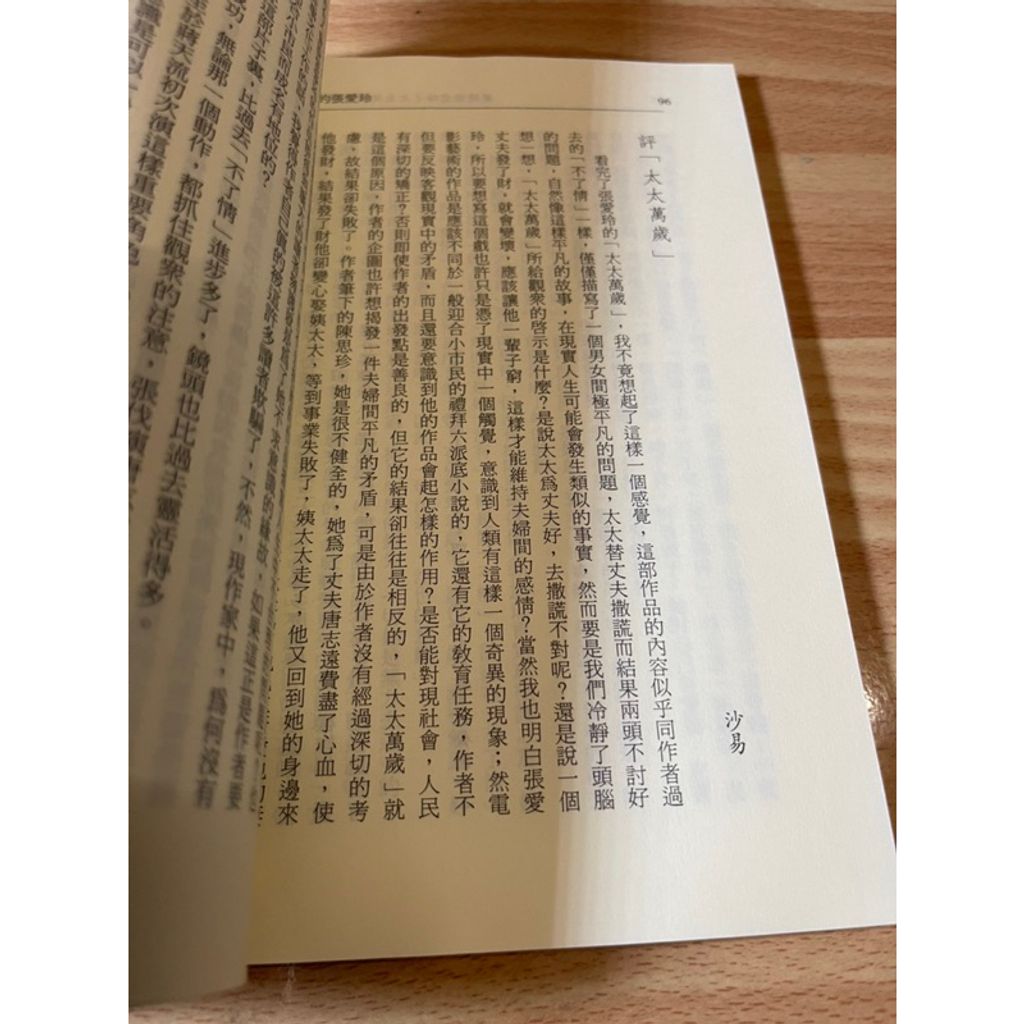 的張愛玲
96
評「太太萬歲」
沙易
看完了張愛玲的「太太萬歲」，我不竟想起了這樣一個感覺，這部作品的內容似乎同作者過
去的「不了情」一樣，僅僅描寫了一個男女間極平凡的問題，太太替丈夫撒謊而結果兩頭不討好
的問題，自然像這樣平凡的故事，在現實人生可能會發生類似的事實，然而要是我們冷靜了頭腦
想一想，「太太萬歲」所給觀衆的啓示是什麼？是說太太爲丈夫好，去撒謊不對呢？還是說一個
丈夫發了財，就會變壞，應該讓他一輩子窮，這樣才能維持夫婦間的感情？當然我也明白張愛
玲，所以要想寫這個戲也許只是憑了現實中一個觸覺，意識到人類有這樣一個奇異的現象；然電
影藝術的作品是應該不同於一般迎合小市民的禮拜六派底小說的，它還有它的敎育任務，作者不
但要反映客觀現實中的矛盾，而且還要意識到他的作品會起怎樣的作用？是否能對現社會，人民
有深切的矯正？否則即使作者的出發點是善良的，但它的結果卻往往是相反的，「太太萬歲」就
是這個原因，作者的企圖也許想揭發一件夫婦間平凡的矛盾，可是由於作者沒有經過深切的考
慮，故結果卻失敗了。作者筆下的陳思珍，她是很不健全的，她爲了丈夫唐志遠費盡了心血，使
他發財，結果發了財他卻變心娶姨太太，等到事業失敗了，姨太太走了，他又回到她的身邊來
如果這正是作者要
不然，現作家中，爲何沒有
小市民而成名有地位的？
這部片子裏，比過去「不了情」進步多了，鏡頭也比過去靈活得多。
成功，無論那一個動作，都抓住觀衆的注意，張伐
於蔣天流初次演這樣重要角色